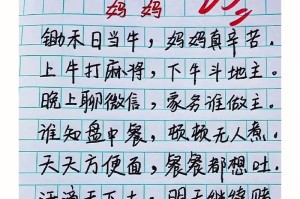 妈妈
锄禾日当午，妈妈真辛苦.
上午打麻将，下午斗地主.
晚上聊微信，家务谁做主.
谁知盘中餐，顿顿无人煮.
天天方便面，餐餐都想吐.